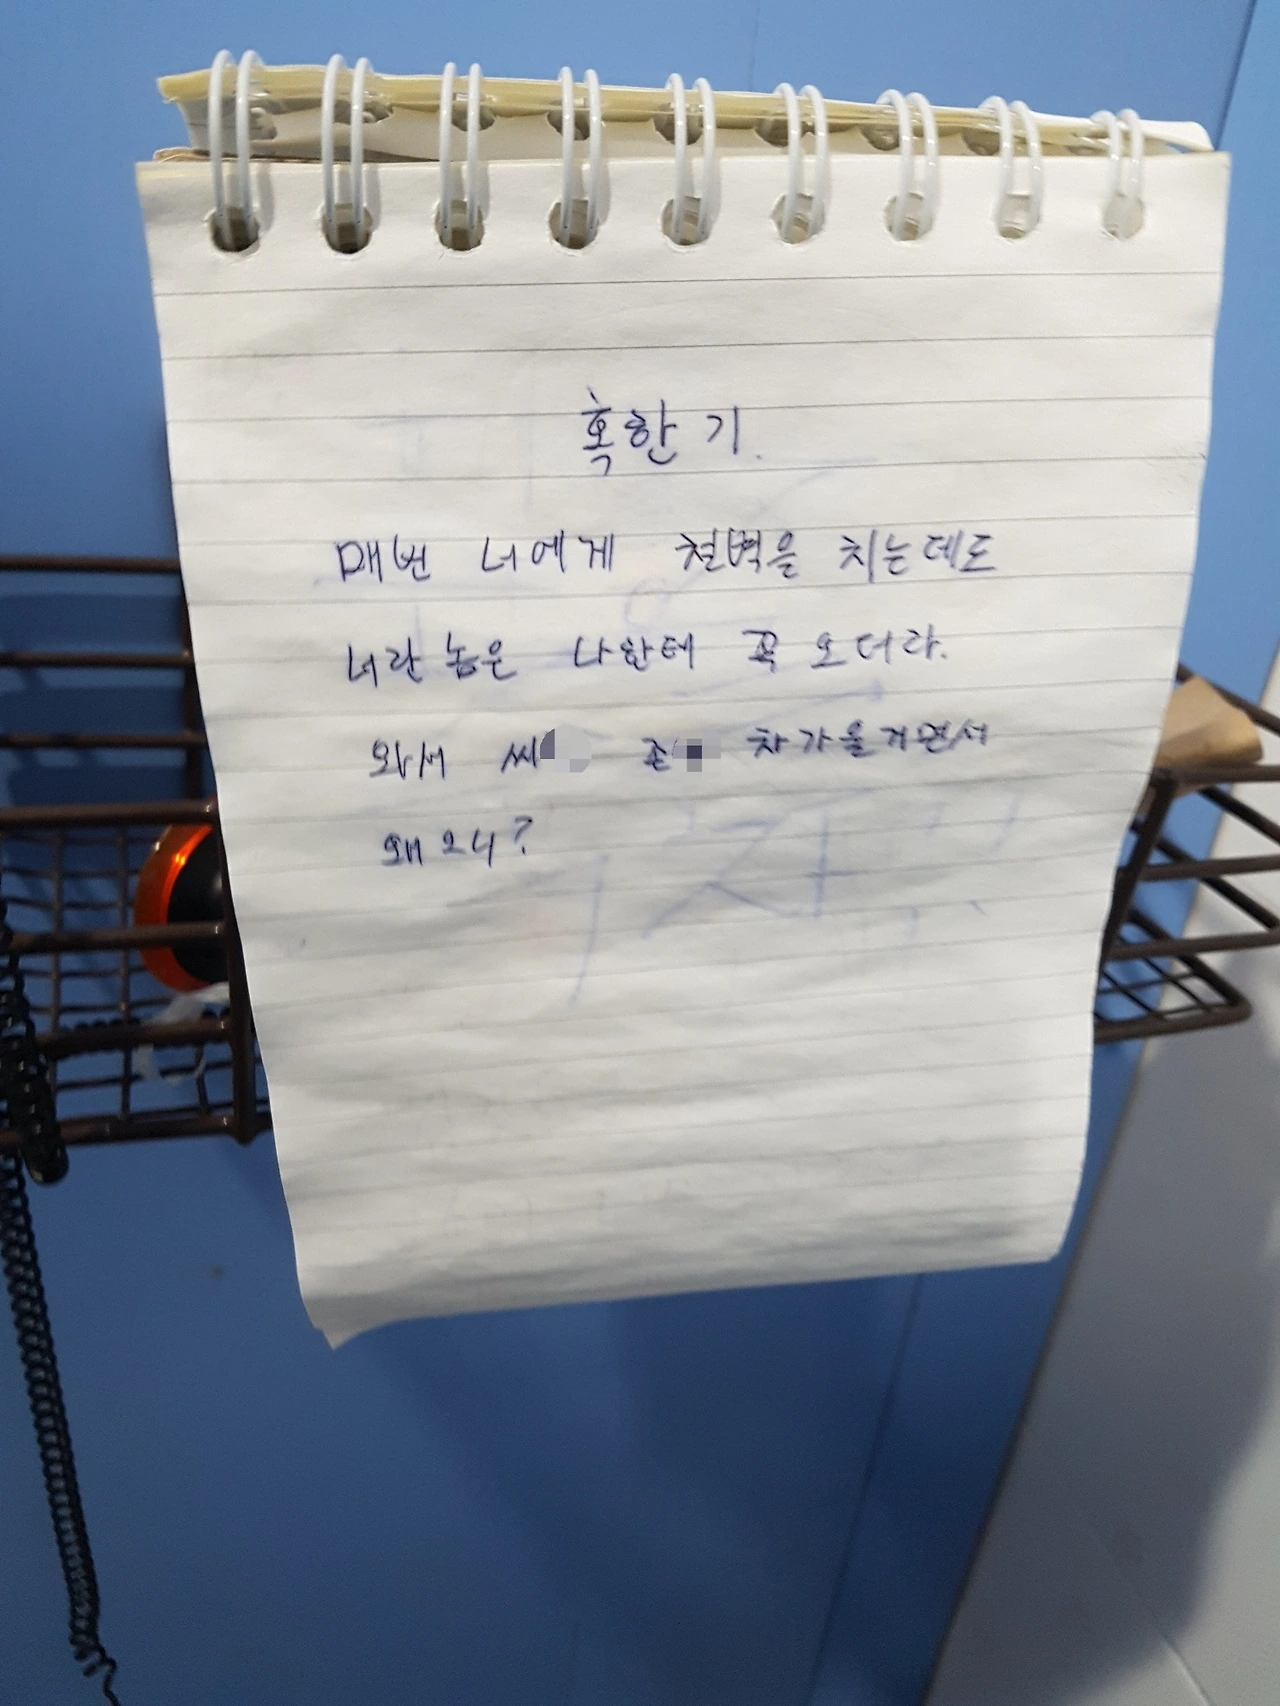 혹한기.
매번 너에게 철벽을 치는데도
너란 놈은 나한테 꼭 오더라.
와서 씨 존 차가울거면서
왜 오니?